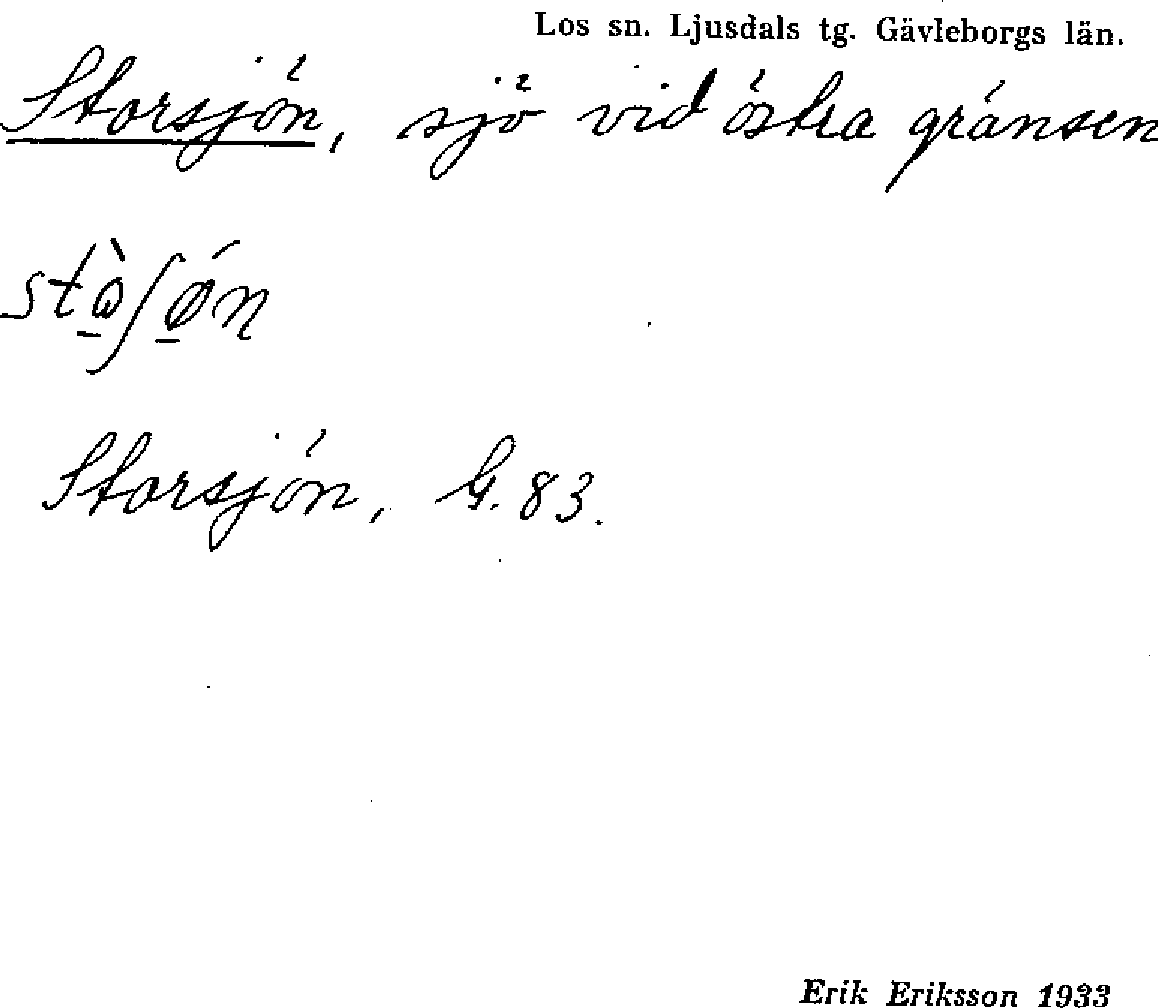 Los sn. Ljusdals tg. Gävleborgs län.
Storsjön, sjö vid östra gränsen
Storsjön, G. 83.
Erik Eriksson 1933